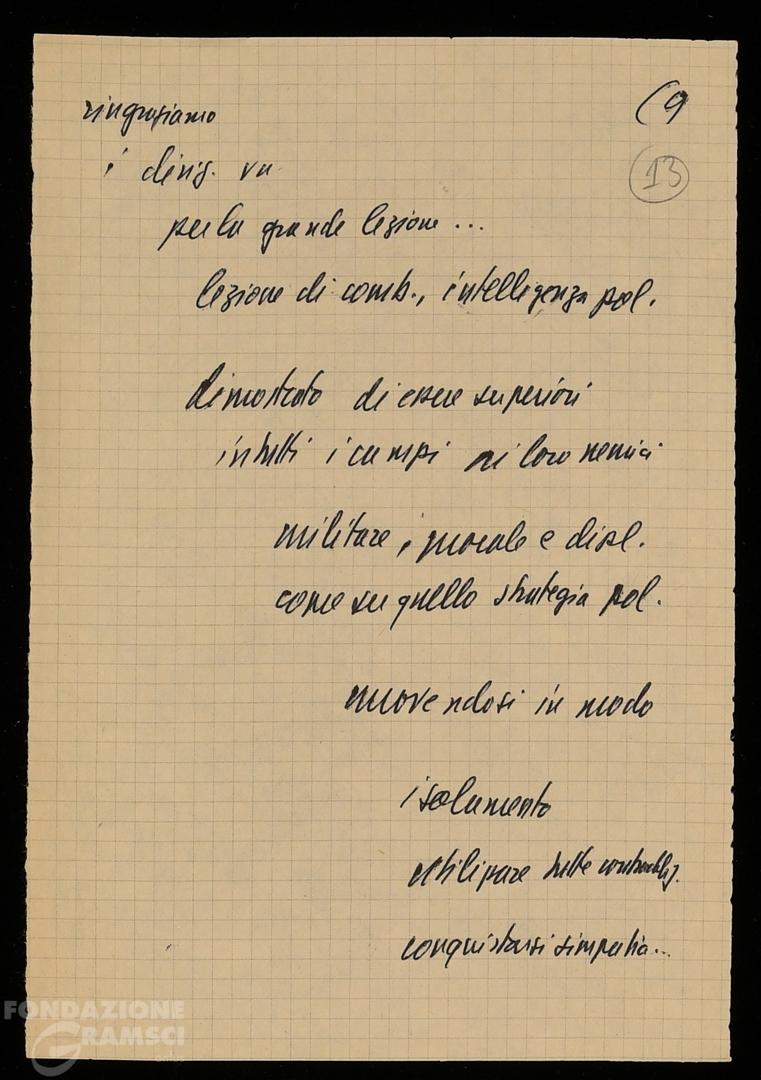 (9
13
ringraziamo
i dirig. vn
per la grande lezione ...
lezione di comb., intelligenza pol.
dimostrato di essere superiori
in tutti i campi ai loro nemici
militare, morale e dipl.
come su quello strategia pol.
muovendosi in modo
isolamento
utilizzare tutte contraddiz.
conquistarsi simpatia...
FONDAZIONE
GRAMSCI
onlus